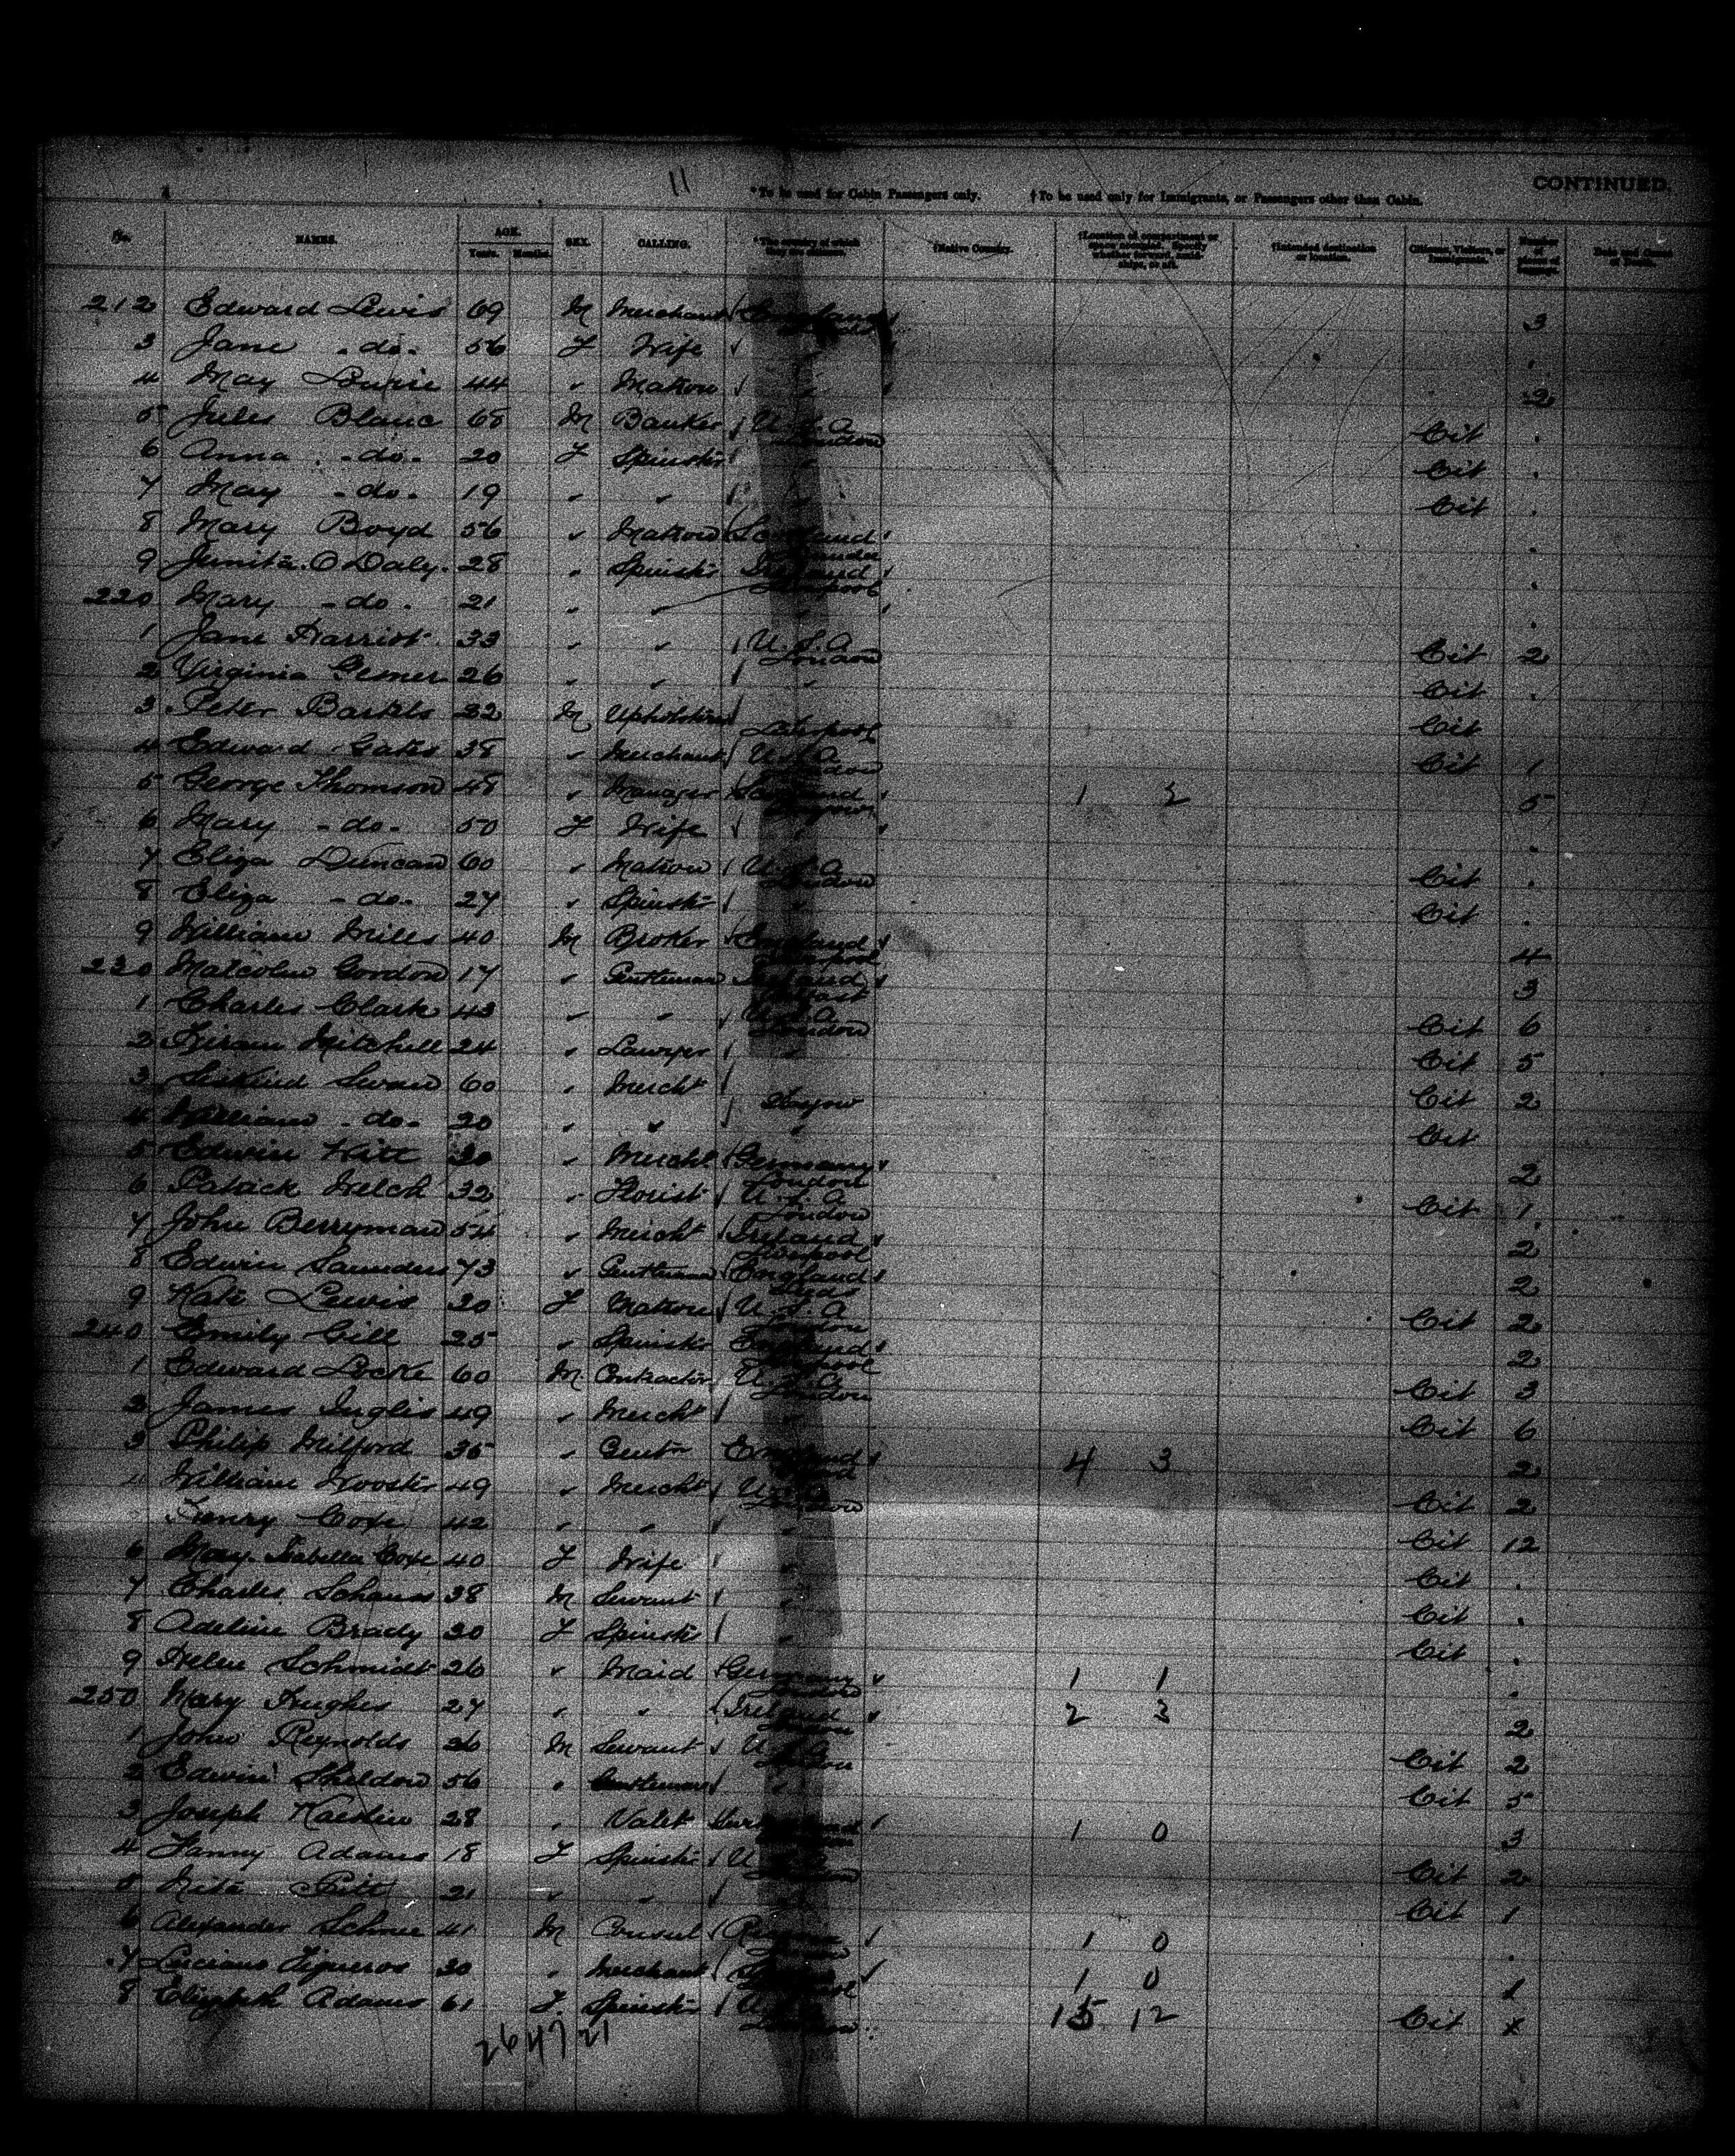 11
*To be used for Cabin Passengers only. †To be used only for Immigrants, or Passengers other than Cabin. CONTINUED.
No. NAMES. AGE. Years. Months. SEX. CALLING. *The country of which they are citizens. †Native Country. †Location of compartment or space occupied. Specify whether forward, amidships, or aft. †Intended destination or location. Citizens, Visitors, or Immigrants. Number of pieces of baggage. Date and Cause of Death.
212 Edward Lewis 69 M Merchant England 3
3 Jane - do - 56 F Wife
4 May 44 " Matron 2
5 Jules Blanc 68 M Banker U.S.A London Cit
6 Anna - do - 20 F Spinster " Cit
7 May - do - 19 " " " Cit
8 Mary Boyd 56 " Matron Scotland
9 Junita O Daly 28 " Spinster Ireland Liverpool
220 Mary - do - 21 " "
1 Jane Harriot 33 " " U.S.A London Cit 2
2 Virginia 26 " " " Cit
3 Peter Bartels 32 M Upholsterer Liverpool Cit
4 Edward Gates 38 " Merchant U.S.A London Cit 1
5 George Thomson 48 " Manager Scotland Glasgow 1 2 5
6 Mary - do - 50 F Wife "
7 Eliza Duncan 60 " Matron U.S.A London Cit
8 Eliza - do - 27 " Spinster " Cit
9 William Miles 40 M Broker England Liverpool 4
230 Malcolm Gordon 17 " Gentleman Ireland Belfast 3
1 Charles Clark 43 " " U.S.A London Cit 6
2 Hiram Mitchell 24 " Lawyer " Cit 5
3 Swan 60 " Mercht Glasgow Cit 2
4 William - do - 20 " " " Cit
5 Edwin 30 " Mercht Germany London 2
6 Patrick Welch 32 " Florist U.S.A London Cit 1
7 John Berryman 54 " Mercht Ireland Liverpool 2
8 Edwin Saunders 73 " Gentleman England Leeds 2
9 Kate Lewis 30 F Matron U.S.A London Cit 2
240 Emily Gill 25 " Spinster England Liverpool 2
1 Edward Locke 60 M Contractor U.S.A London Cit 3
2 James Inglis 49 " Mercht " Cit 6
3 Philip Milford 35 " Gent England 4 3 2
4 William Wooster 49 " Mercht U.S.A London Cit 2
Henry Coxe 42 " " " Cit 12
6 Mary Isabella Coxe 40 F Wife " Cit
7 Charles 38 M Servant " Cit
8 Adeline Brady 30 F Spinster " Cit
9 Helen Schmidt 26 " Maid Germany London 1 1
250 Mary Hughes 27 " " Ireland London 2 3 2
1 John Reynolds 36 M Servant U.S.A London Cit 2
2 Edwin Sheldon 56 " Gentleman " Cit 5
3 Joseph 28 " Valet 1 0 3
4 Fanny Adams 18 F Spinster U.S.A London Cit 2
5 21 " " " Cit 1
6 Alexander 41 M Consul 1 0
7 Luciano Figueros 30 " Merchant 1 0 1
8 Elizabeth Adams 61 F Spinster U.S.A London 15 12 Cit x
26 47 21